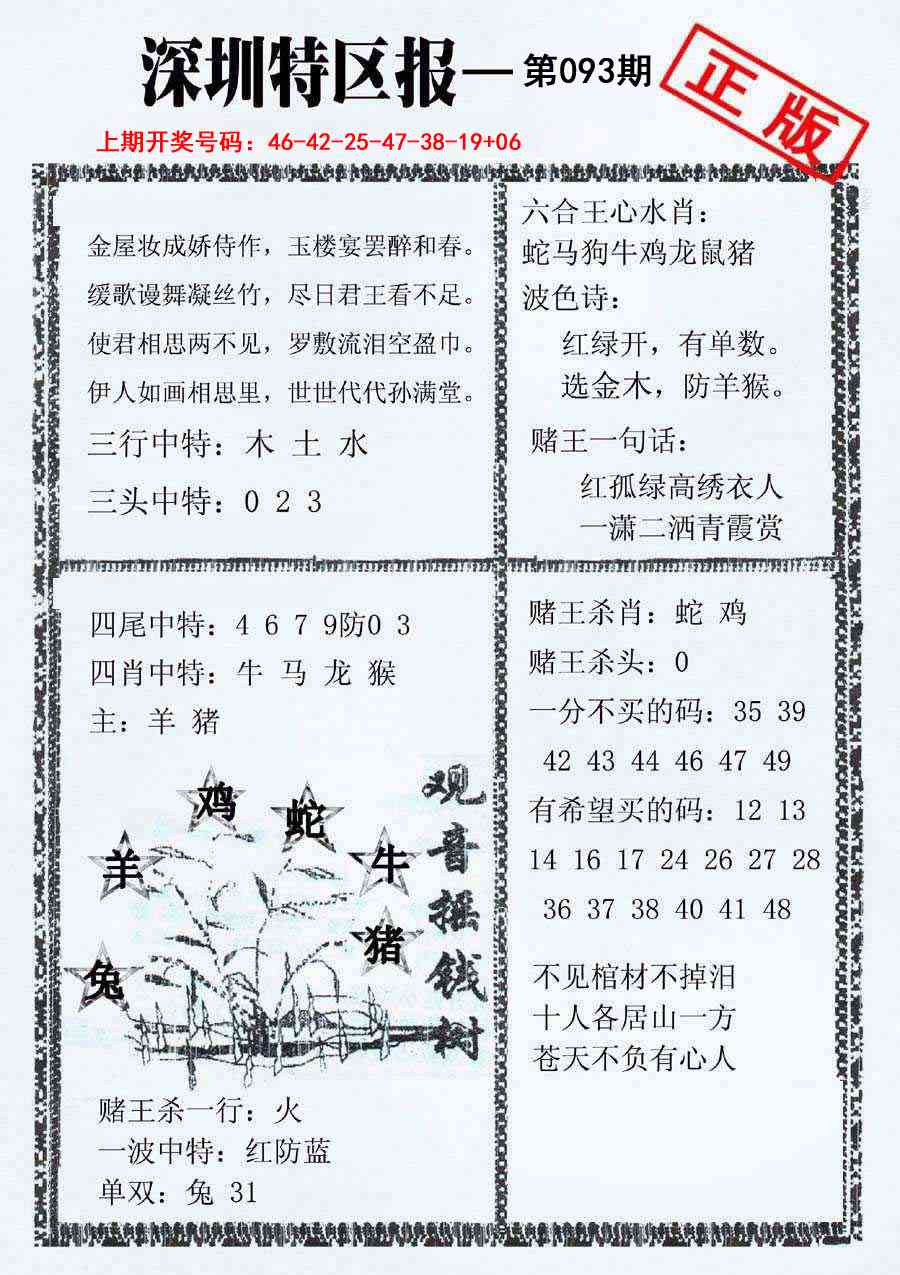 深圳特区报—第093期
正版
上期开奖号码：46-42-25-47-38-19+06
金屋妆成娇侍作，玉楼宴罢醉和春。
缓歌谩舞凝丝竹，尽日君王看不足。
使君相思两不见，罗敷流泪空盈巾。
伊人如画相思里，世世代代孙满堂。
三行中特：木 土 水
三头中特：0 2 3
六合王心水肖：
蛇马狗牛鸡龙鼠猪
波色诗：
红绿开，有单数。
选金木，防羊猴。
赌王一句话：
红孤绿高绣衣人
一潇二洒青霞赏
四尾中特：4 6 7 9防0 3
四肖中特：牛 马 龙 猴
主：羊 猪
鸡
蛇
羊
牛
猪
兔
观音摇钱树
赌王杀一行：火
一波中特：红防蓝
单双：兔 31
赌王杀肖：蛇 鸡
赌王杀头：0
一分不买的码：35 39
42 43 44 46 47 49
有希望买的码：12 13
14 16 17 24 26 27 28
36 37 38 40 41 48
不见棺材不掉泪
十人各居山一方
苍天不负有心人